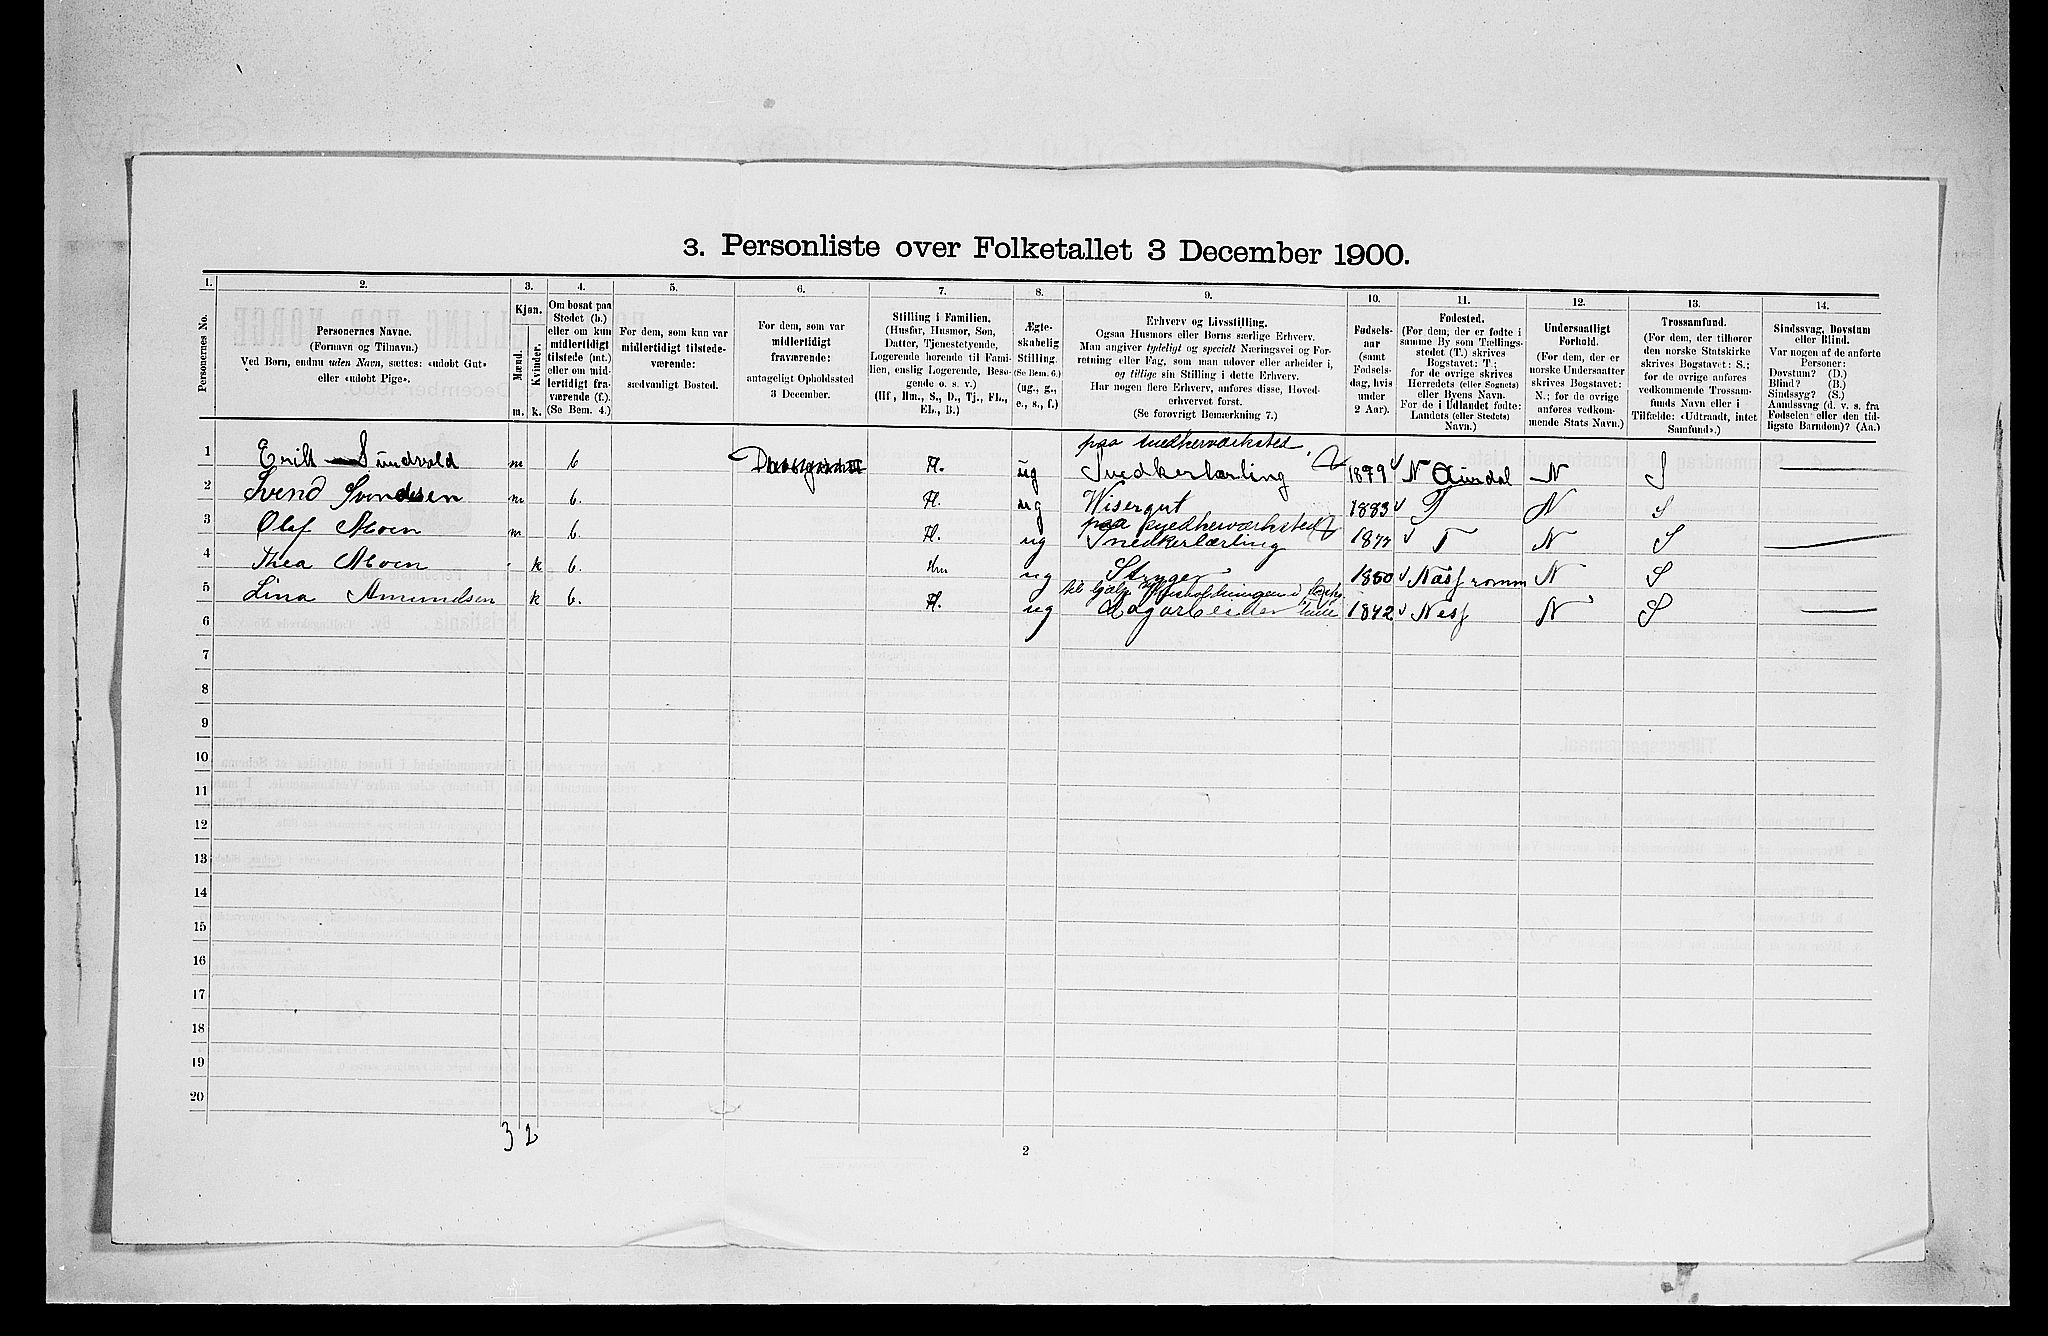 3. Personliste over Folketallet 3 December 1900.
1. 2. 3. 4. 5. 6. 7. 8. 9. 10. 11. 12. 13. 14.
Personernes No.
Personernes Navne.
(Fornavn og Tilnavn.)
Ved Børn, endnu uden Navn, sættes: «udøbt Gut»
eller «udøbt Pige».
Kjøn.
Mænd.
Kvinder.
m. k.
Om bosat paa
Stedet (b.)
eller om kun
midlertidigt
tilstede (mt.)
eller om mid-
lertidigt fra-
værende (f.).
(Se Bem. 4.)
For dem, som kun var
midlertidigt tilstede-
værende:
sædvanligt Bosted.
For dem, som var
midlertidigt
fraværende:
antageligt Opholdssted
3 December.
Stilling i Familien.
(Husfar, Husmor, Søn,
Datter, Tjenestetyende,
Logerende hørende til Fami-
lien, enslig Logerende, Besø-
gende o. s. v.)
(Hf., Hm., S., D., Tj., FL.,
EL., B.)
Ægte-
skabelig
Stilling.
(Se Bem. 6.)
(ug., g.,
e., s., f.)
Erhverv og Livsstilling.
Ogsaa Husmors eller Børns særlige Erhverv.
Man angiver tydeligt og specielt Næringsvei og For-
retning eller Fag, som man udøver eller arbeider i,
og tillige sin Stilling i dette Erhverv.
Har nogen flere Erhverv, anføres disse, Hoved-
erhvervet først.
(Se forøvrigt Bemærkning 7.)
Fødsels-
aar
(samt
Fødsels-
dag, hvis
under
2 Aar).
Fødested.
(For dem, der er fødte i
samme By som Tællings-
stedet (T.) skrives
Bogstavet: T.;
for de øvrige skrives
Herredets (eller Sognets)
eller Byens Navn.
For de i Udlandet fødte:
Landets (eller Stedets)
Navn.)
Undersaatligt
Forhold.
(For dem, der er
norske Undersaatter
skrives Bogstavet:
N.; for de øvrige
anføres vedkom-
mende Stats Navn.)
Trossamfund.
(For dem, der tilhører
den norske Statskirke
skrives Bogstavet: S.;
for de øvrige anføres
vedkommende Trossam-
funds Navn eller i
Tilfælde: «Udtraadt, intet
Samfund».)
Sindssvag, Døvstum
eller Blind.
Var nogen af de anførte
Personer:
Døvstum? (D.)
Blind? (B.)
Sindssyg? (S.)
Aandssvag (d. v. s. fra
Fødselen eller den tid-
ligste Barndom)? (Aa.)
paa snedkerværksted
1 Erik Sundvold m b ug Snedkerlærling 1879 N Aurdal N S
2 Svend Svendsen m b. ug Wisergut 1883 T N S
paa snedkerværksted
3 Olaf Moen m b. ug Snedkerlærling 1877 T N S
4 Thea Moen k b. Hm ug Stryger 1850 N S
til hjælp
5 Lina Amundsen k b. ug Dagarbeider 1872 Ness N S
6
7
8
9
10
11
12
13
14
15
16
17
18
19
20
3 2
2